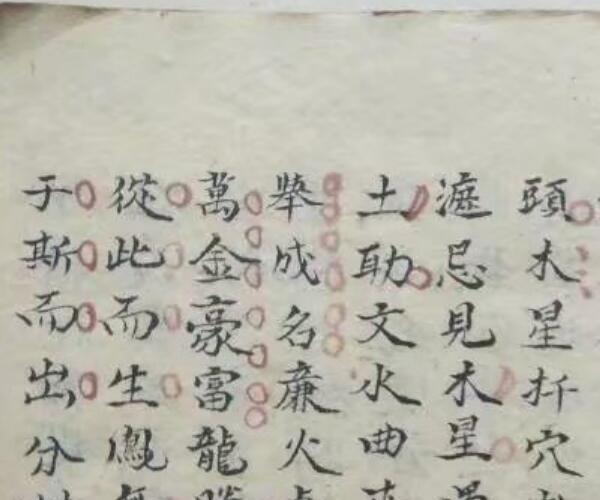 頭木星扦穴
遮忌見木星
土助文水曲
舉成名廉火
萬金豪富龍
從此而生鳳
于斯而出分